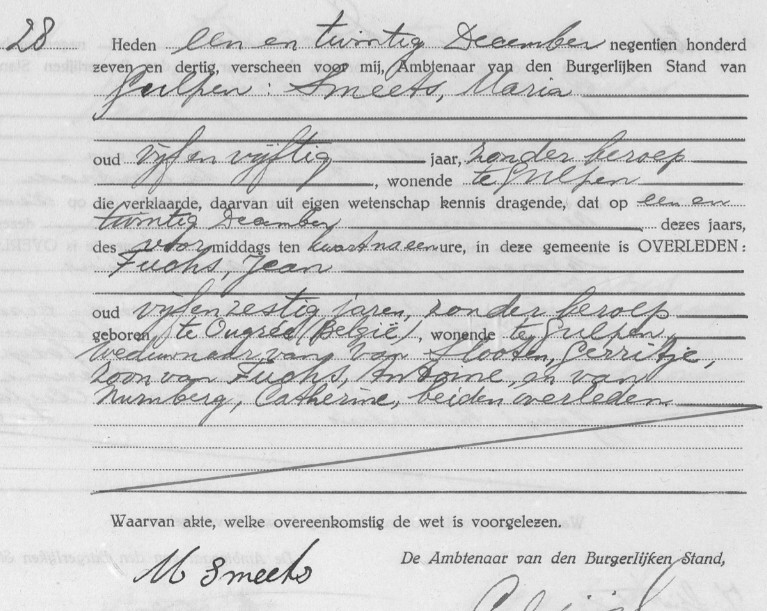 28 Heden een en twintig December negentien honderd
zeven en dertig, verscheen voor mij, Ambtenaar van den Burgerlijken Stand van
Gulpen: Smeets, Maria
oud vijf en vijftig jaar, zonder beroep
, wonende te Gulpen
die verklaarde, daarvan uit eigen wetenschap kennis dragende, dat op een en
twintig December dezes jaars,
des voormiddags ten kwart na een ure, in deze gemeente is OVERLEDEN:
Fuchs, Jean
oud vijf en zestig jaren, zonder beroep
geboren te Ougrée (België), wonende te Gulpen,
weduwnaar van: Van Slooten, Gerritje,
zoon van Fuchs, Antoine, en van
Nurnberg, Catherine, beiden overleden.
Waarvan akte, welke overeenkomstig de wet is voorgelezen.
De Ambtenaar van den Burgerlijken Stand,
M Smeets